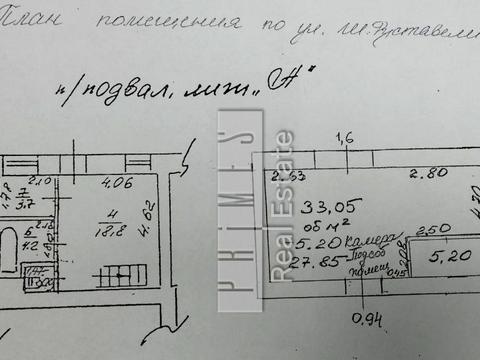 План помещения по ул. Ш. Руставели
п/подвал, лит. "А"
PRIMES
Real Estate
1,6
2.10
4.06
2.63
2.80
1.78
7
3.7
4
18,8
4.62
33,05
об м²
4.70
2.18
6
4.2
5.20 камера
27.85 Подсоб
помещ
2,50
2,08
0,45
5,20
0,94